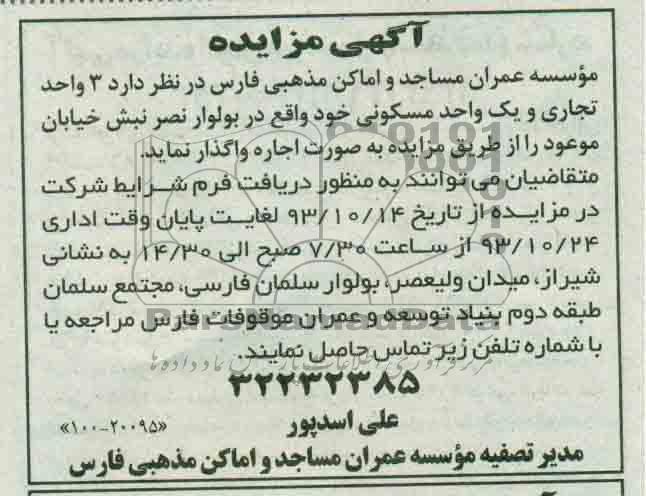 آگهی مزایده
مؤسسه عمران مساجد و اماکن مذهبی فارس در نظر دارد ۳ واحد
تجاری و یک واحد مسکونی خود واقع در بولوار نصر نبش خیابان
موعود را از طریق مزایده به صورت اجاره واگذار نماید.
متقاضیان می توانند به منظور دریافت فرم شرایط شرکت
در مزایده از تاریخ ۹۳/۱۰/۱۴ لغایت پایان وقت اداری
۹۳/۱۰/۲۴ از ساعت ۷/۳۰ صبح الی ۱۴/۳۰ به نشانی
شیراز، میدان ولیعصر، بولوار سلمان فارسی، مجتمع سلمان
طبقه دوم بنیاد توسعه و عمران موقوفات فارس مراجعه یا
با شماره تلفن زیر تماس حاصل نمایند.
۳۲۲۳۲۳۸۵
علی اسدپور
«۱۰۰-۲۰۰۹۵»
مدیر تصفیه مؤسسه عمران مساجد و اماکن مذهبی فارس